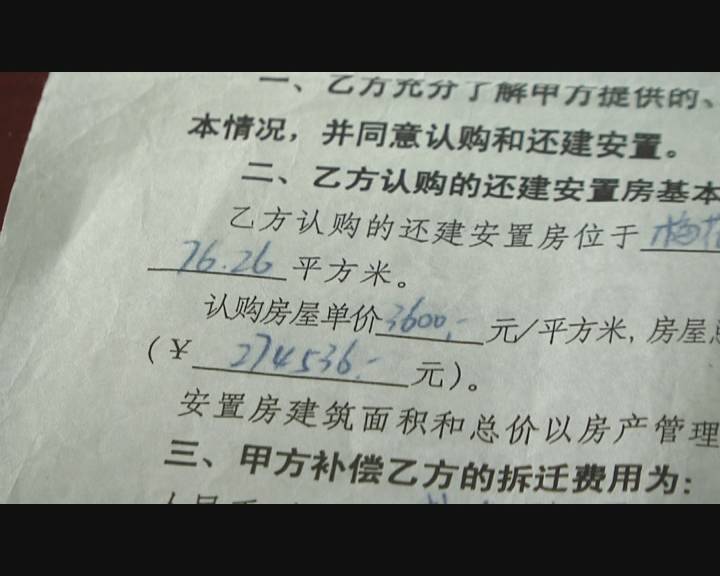 一、乙方充分了解甲方提供的、
本情况，并同意认购和还建安置。
二、乙方认购的还建安置房基本
乙方认购的还建安置房位于梅
76.26平方米。
认购房屋单价3600.-元/平方米，房屋总
(￥274536.-元)。
安置房建筑面积和总价以房产管理
三、甲方补偿乙方的拆迁费用为：